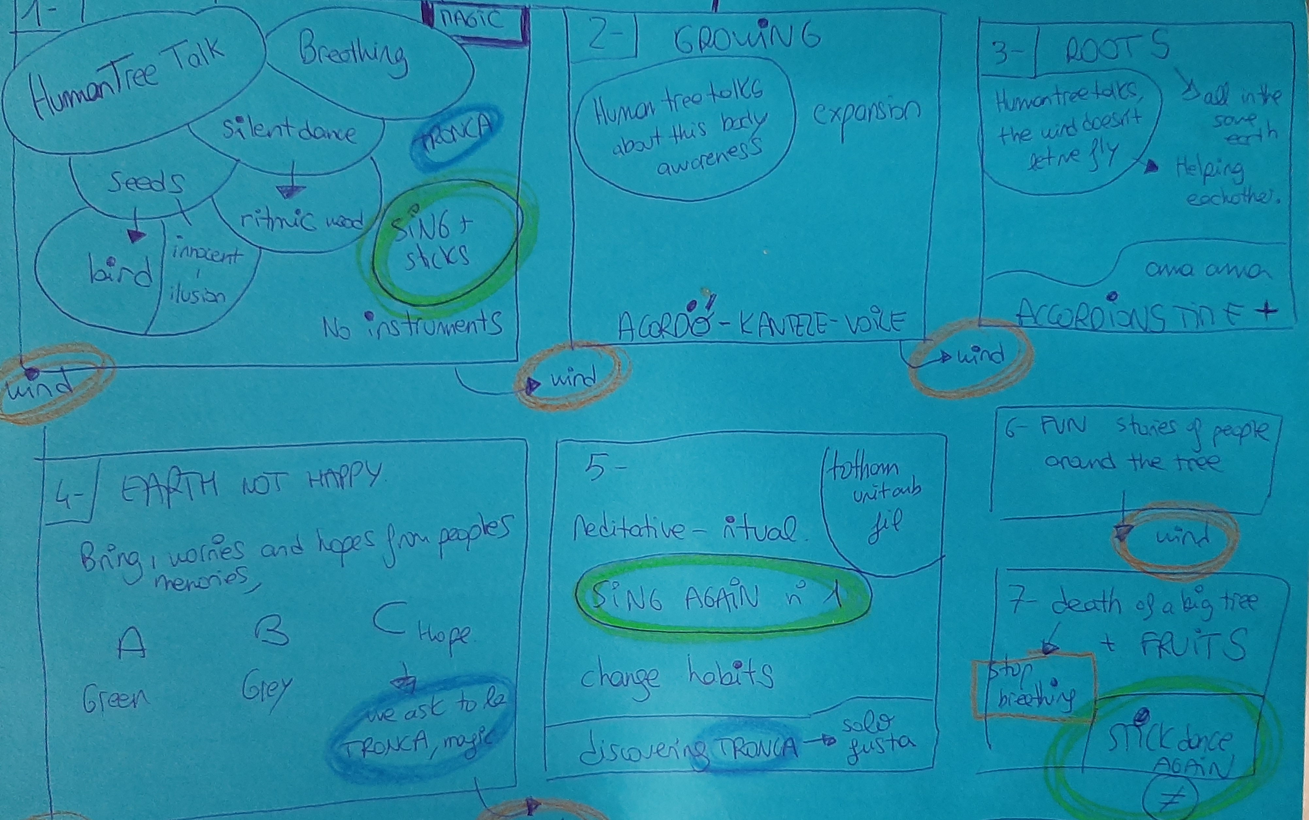 1-
MAGIC
HumanTree Talk
Breathing
silent dance
TRONCA
seeds
ritmic wood
SING +
sticks
bird
innocent
ilusion
No instruments
wind
2- GROWING
Human tree talks
about this body
awareness
expansion
ACORDIÓ - KANTELE - VOICE
wind
3- ROOTS
Human tree talks,
the wind doesn't
let me fly
all in the
same
earth
Helping
eachother.
ama ama
ACCORDIONS TIME +
wind
4- EARTH NOT HAPPY.
Bring, worries and hopes from peoples
memories,
A
B
C Hope.
Green
Grey
we ask to be
TRONCA, magic
5-
tothom
unit amb
fil
Meditative - ritual.
SING AGAIN nº 1
change habits
discovering TRONCA
solo
fusta
6- FUN stories of people
around the tree
wind
7- death of a big tree
+ FRUITS
stop
breathing
STICK dance
AGAIN
≠